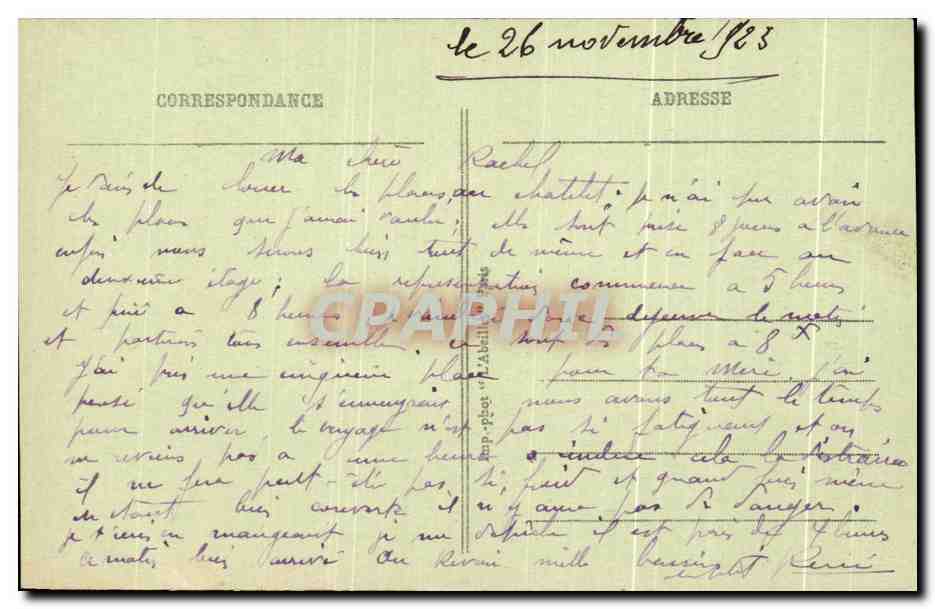 le 26 novembre 1923
CORRESPONDANCE
ADRESSE
Ma chère Rachel
Je viens de louer les places au Chatelet; je n'ai pu avoir
les places que j'aurai voulu; elles sont prise 8 jours à l'avance
enfin nous serons bien tout de même et en face au
deuxième étage; la représentation commence a 5 heures
et finit a 8 heures déjeuner le matin
et partirons tous ensemble, ce sont des places a 8 F
J'ai pris une cinquième place pour ta Mère. J'ai
pensé qu'elle s'ennuyerait nous avons tout le temps
pour arriver le voyage n'est pas si fatiguant et on
ne reviens pas a une heure indue cela la distraira
il ne fera peut-être pas si froid et quand bien même
en étant bien couverte il n'y aura pas de danger.
je t'écris en mangeant je me dépêche il est près de 4 heures
ce matin bien arrivé Au Revoir mille baisers René
Imp.-phot "L'Abeille" Paris
CPAPHIL